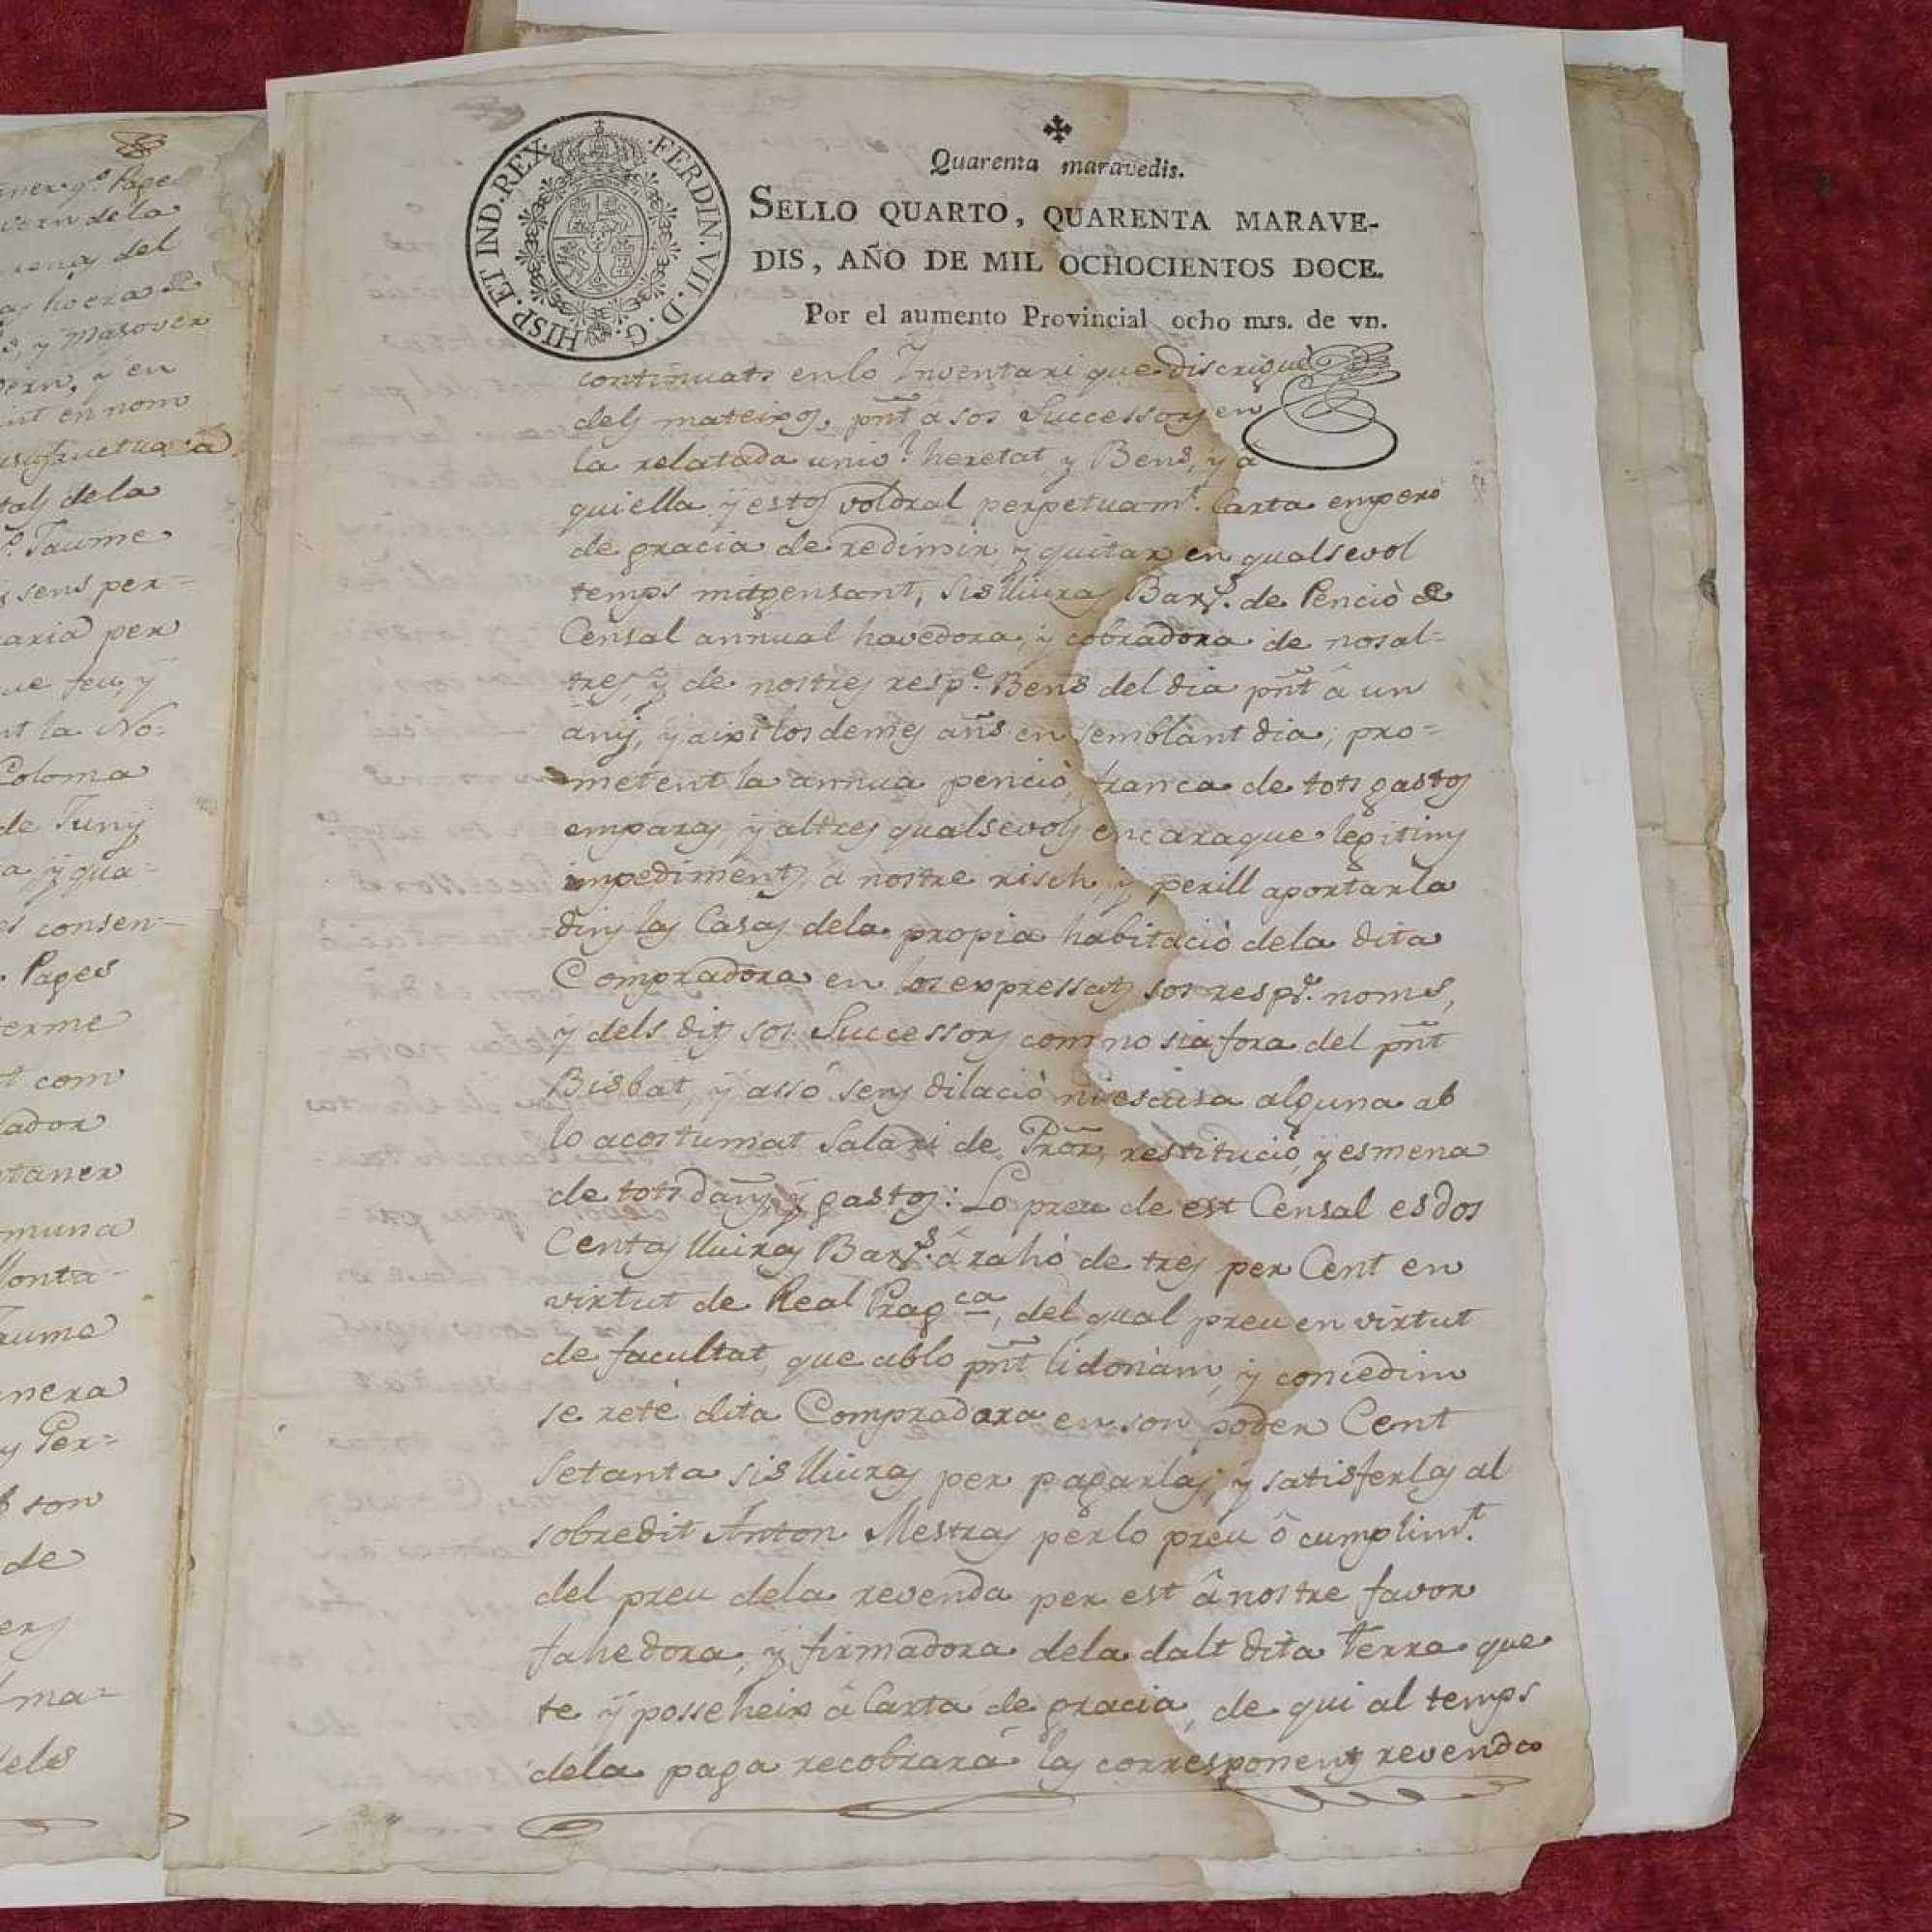 FERDIN. VII. D. G. HISP. ET IND. REX.
Quarenta maravedis.
SELLO QUARTO, QUARENTA MARAVE-
DIS, AÑO DE MIL OCHOCIENTOS DOCE.
Por el aumento Provincial ocho mrs. de vn.
continuats en lo Inventari que discrigué
dels mateixos, pñt á sos Successors en
la relatada unió heretat y Bens, y á
qui ella, y estos voldral perpetuamt. Carta emperó
de gracia de redimir, y quitar en qualsevol
temps mitgensant, sis lliuras Bars. de Penció de
Censal annual havedora, y cobradora de nosal=
tres, y de nostres respe. Bens del dia pñt â un
añy, y aixi los demes añs en semblant dia; pro=
metent la annua penció franca de tots gastos
emparas, y altres qualsevols encaraque legitims
impediments, á nostre risch, y perill aportarla
dins las Casas dela propia habitació dela dita
Compradora en los expressats sos resps. noms,
y dels dits sos Successors com no sia fora del pñt
Bisbat, y assó sens dilació ni escusa alguna ab
lo acostumat Salari de Prõr, restitució, y esmena
de tots dañs, y gastos: Lo preu de est Censal es dos
Centas lliuras Bars. á rahó de tres per Cent en
virtut de Real Pragca, del qual preu en virtut
de facultat, que ablo pñt li donám, y concedim
se reté dita Compradora en son poder Cent
setanta sis lliuras per pagarlas, y satisferlas al
sobredit Anton Mestras perlo preu ô cumplimt.
del preu dela revenda per est â nostre favor
fahedora, y firmadora dela dalt dita terra que
te y posseheix á Carta de gracia, de qui al temps
dela paga recobrará las corresponents revenda
vern dela
del
y Masover
y en
int en nom
usufructuaria
tals dela
Jaume
sens per=
per
que feu, y
nt la No=
Coloma
de Juny
a, y qua=
consen=
Pages
terme
t com
ador
taner
muna
Monta-
aume
nera
y Per=
son
de
ers
ma=
dels